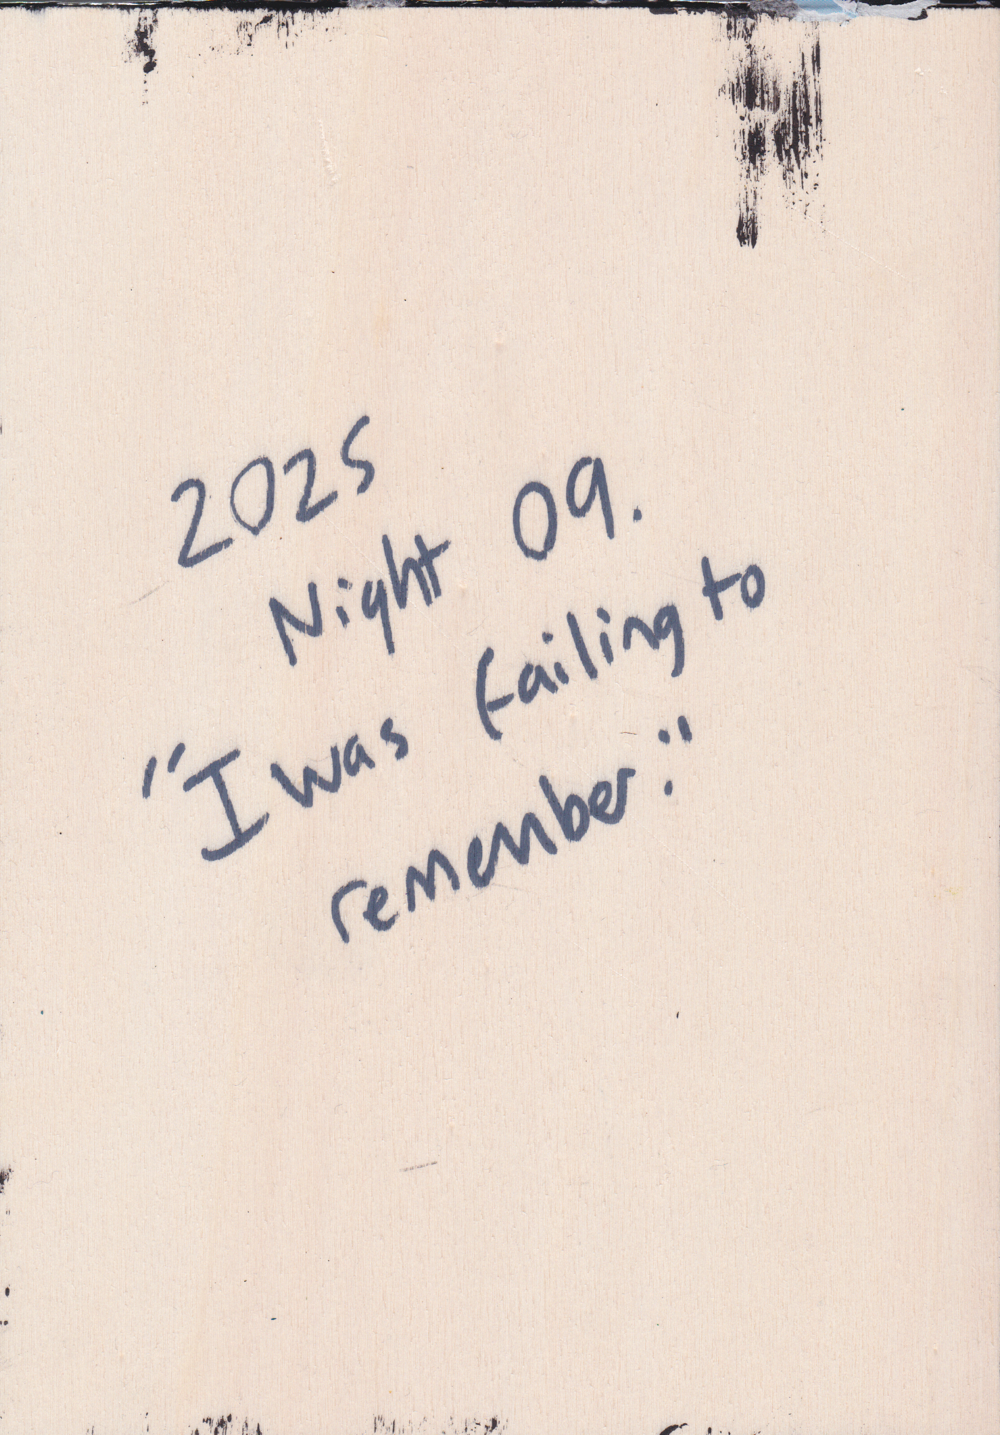 2025
Night 09.
"I was failing to
remember."